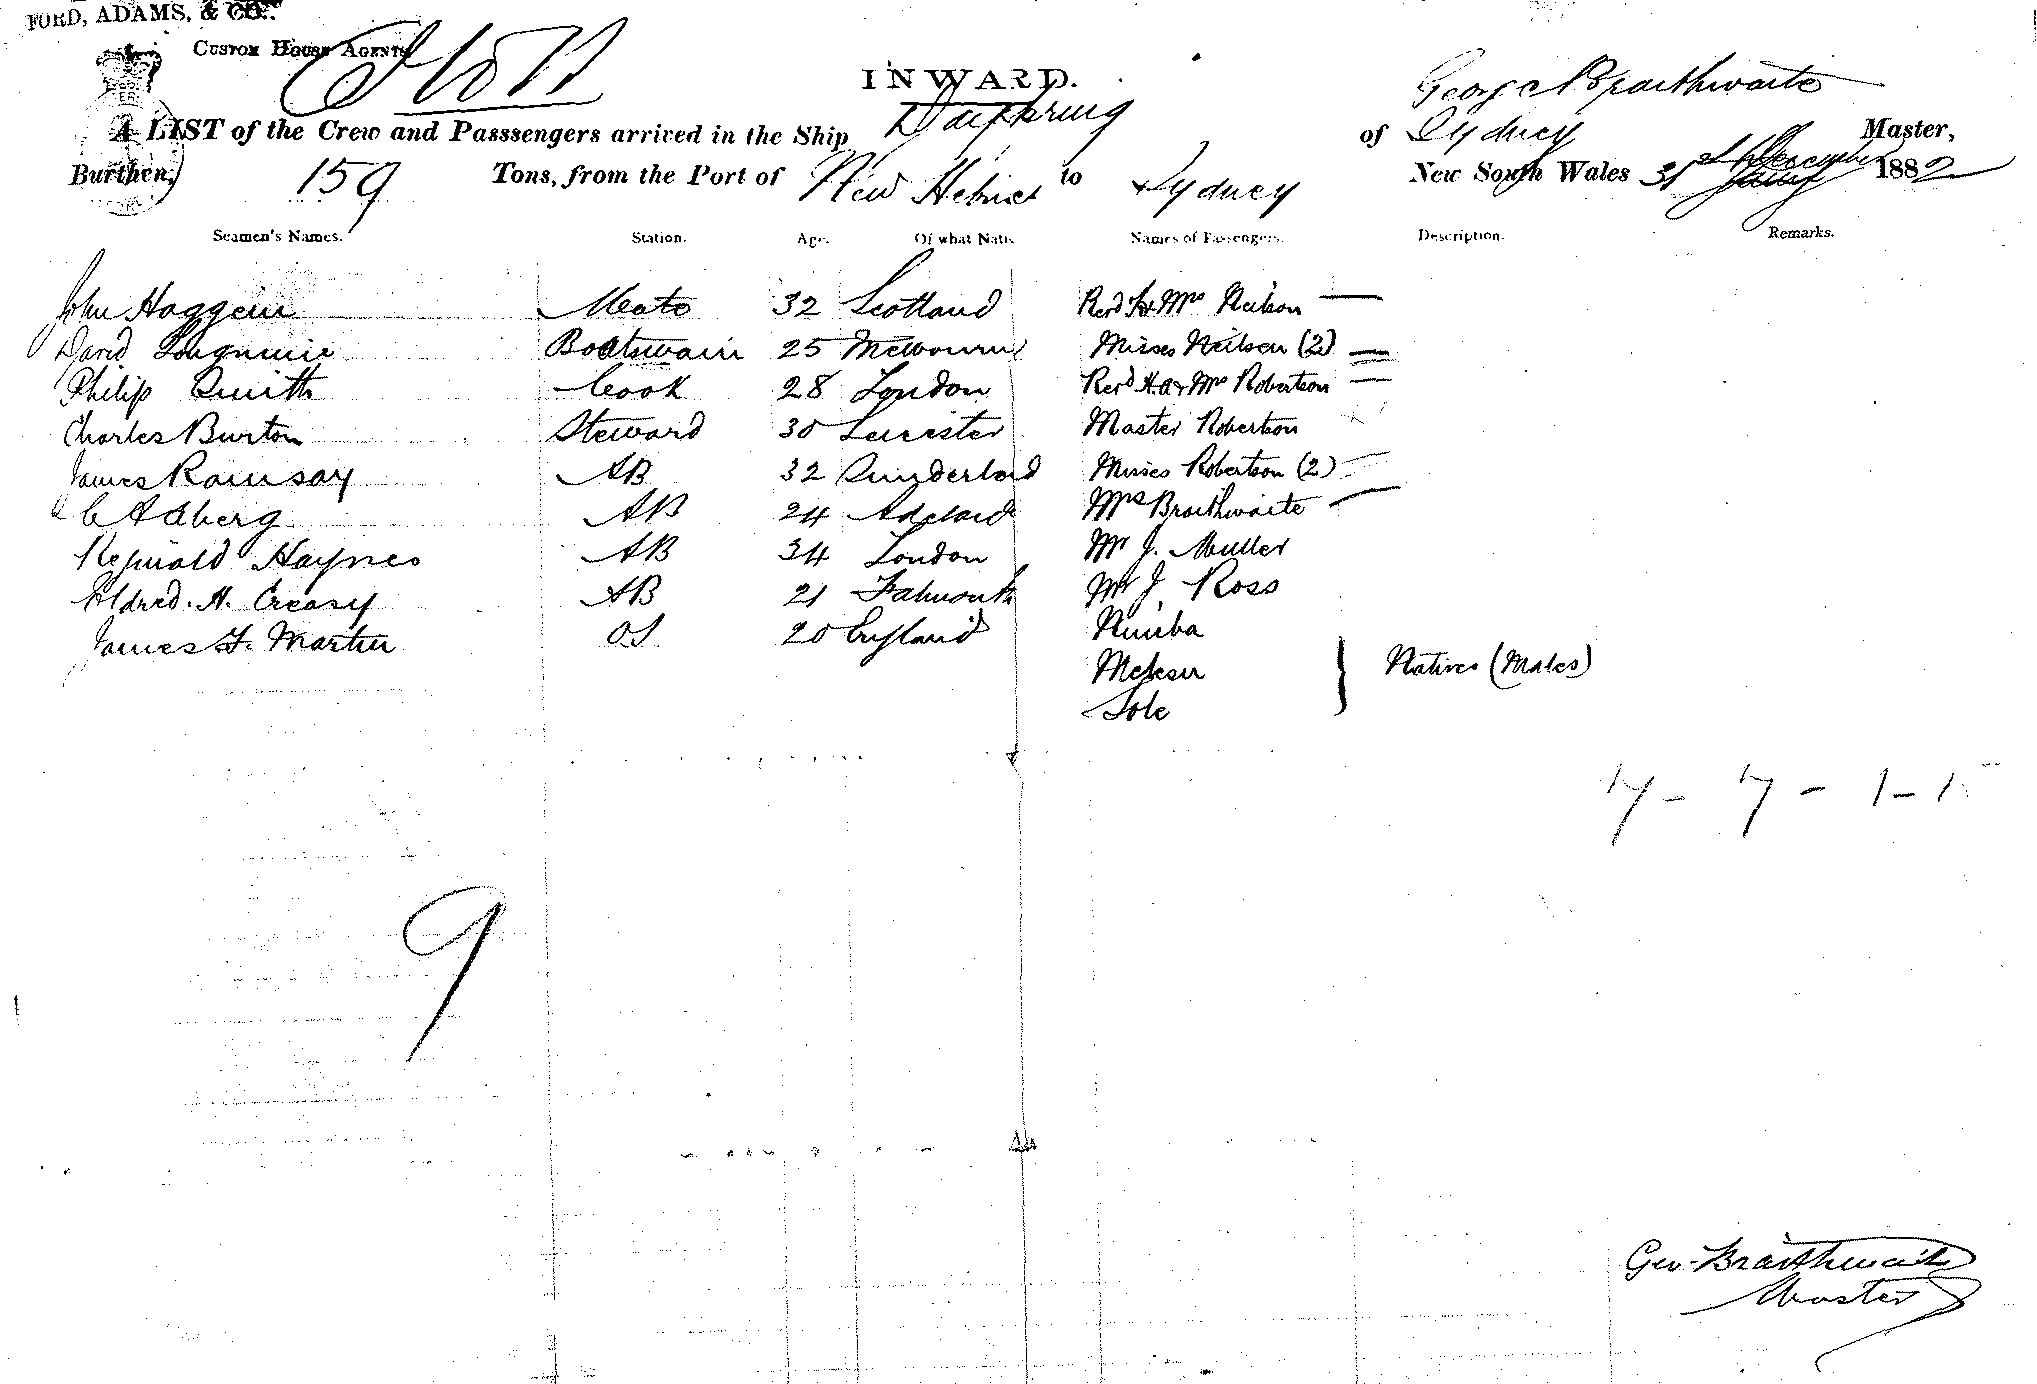 FORD, ADAMS, & CO.
CUSTOM HOUSE AGENTS
INWARD.
A LIST of the Crew and Passsengers arrived in the Ship Dayspring of Sydney George Braithwaite Master,
Burthen, 159 Tons, from the Port of New Hebrides to Sydney New South Wales 31st December 1882
Seamen's Names. Station. Age. Of what Nati. Names of Passengers. Description. Remarks.
John Haggein Mate 32 Scotland Revd & Mrs Neilson —
David Longmuir Boatswain 25 Melbourne Misses Neilson (2) =
Philip Smith Cook 28 London Revd H.A & Mrs Robertson —
Charles Burton Steward 30 Leicester Master Robertson
James Ramsay AB 32 Sunderland Misses Robertson (2)
C Adberg AB 24 Adelaide Mrs Braithwaite —
Reginald Haynes AB 34 London Mr J. Muller
Eldred. A. Creasy AB 21 Falmouth Mr J. Ross
James F. Martin OS 20 England Numba
Meleser } Natives (Males)
Sole
7 - 7 - 1 - 1
9
Geo Braithwaite
Master